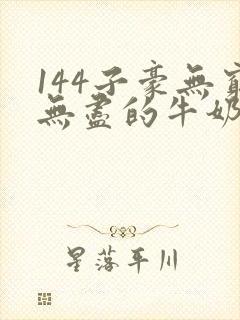 144子豪無窮
無盡的牛奶
星落平川